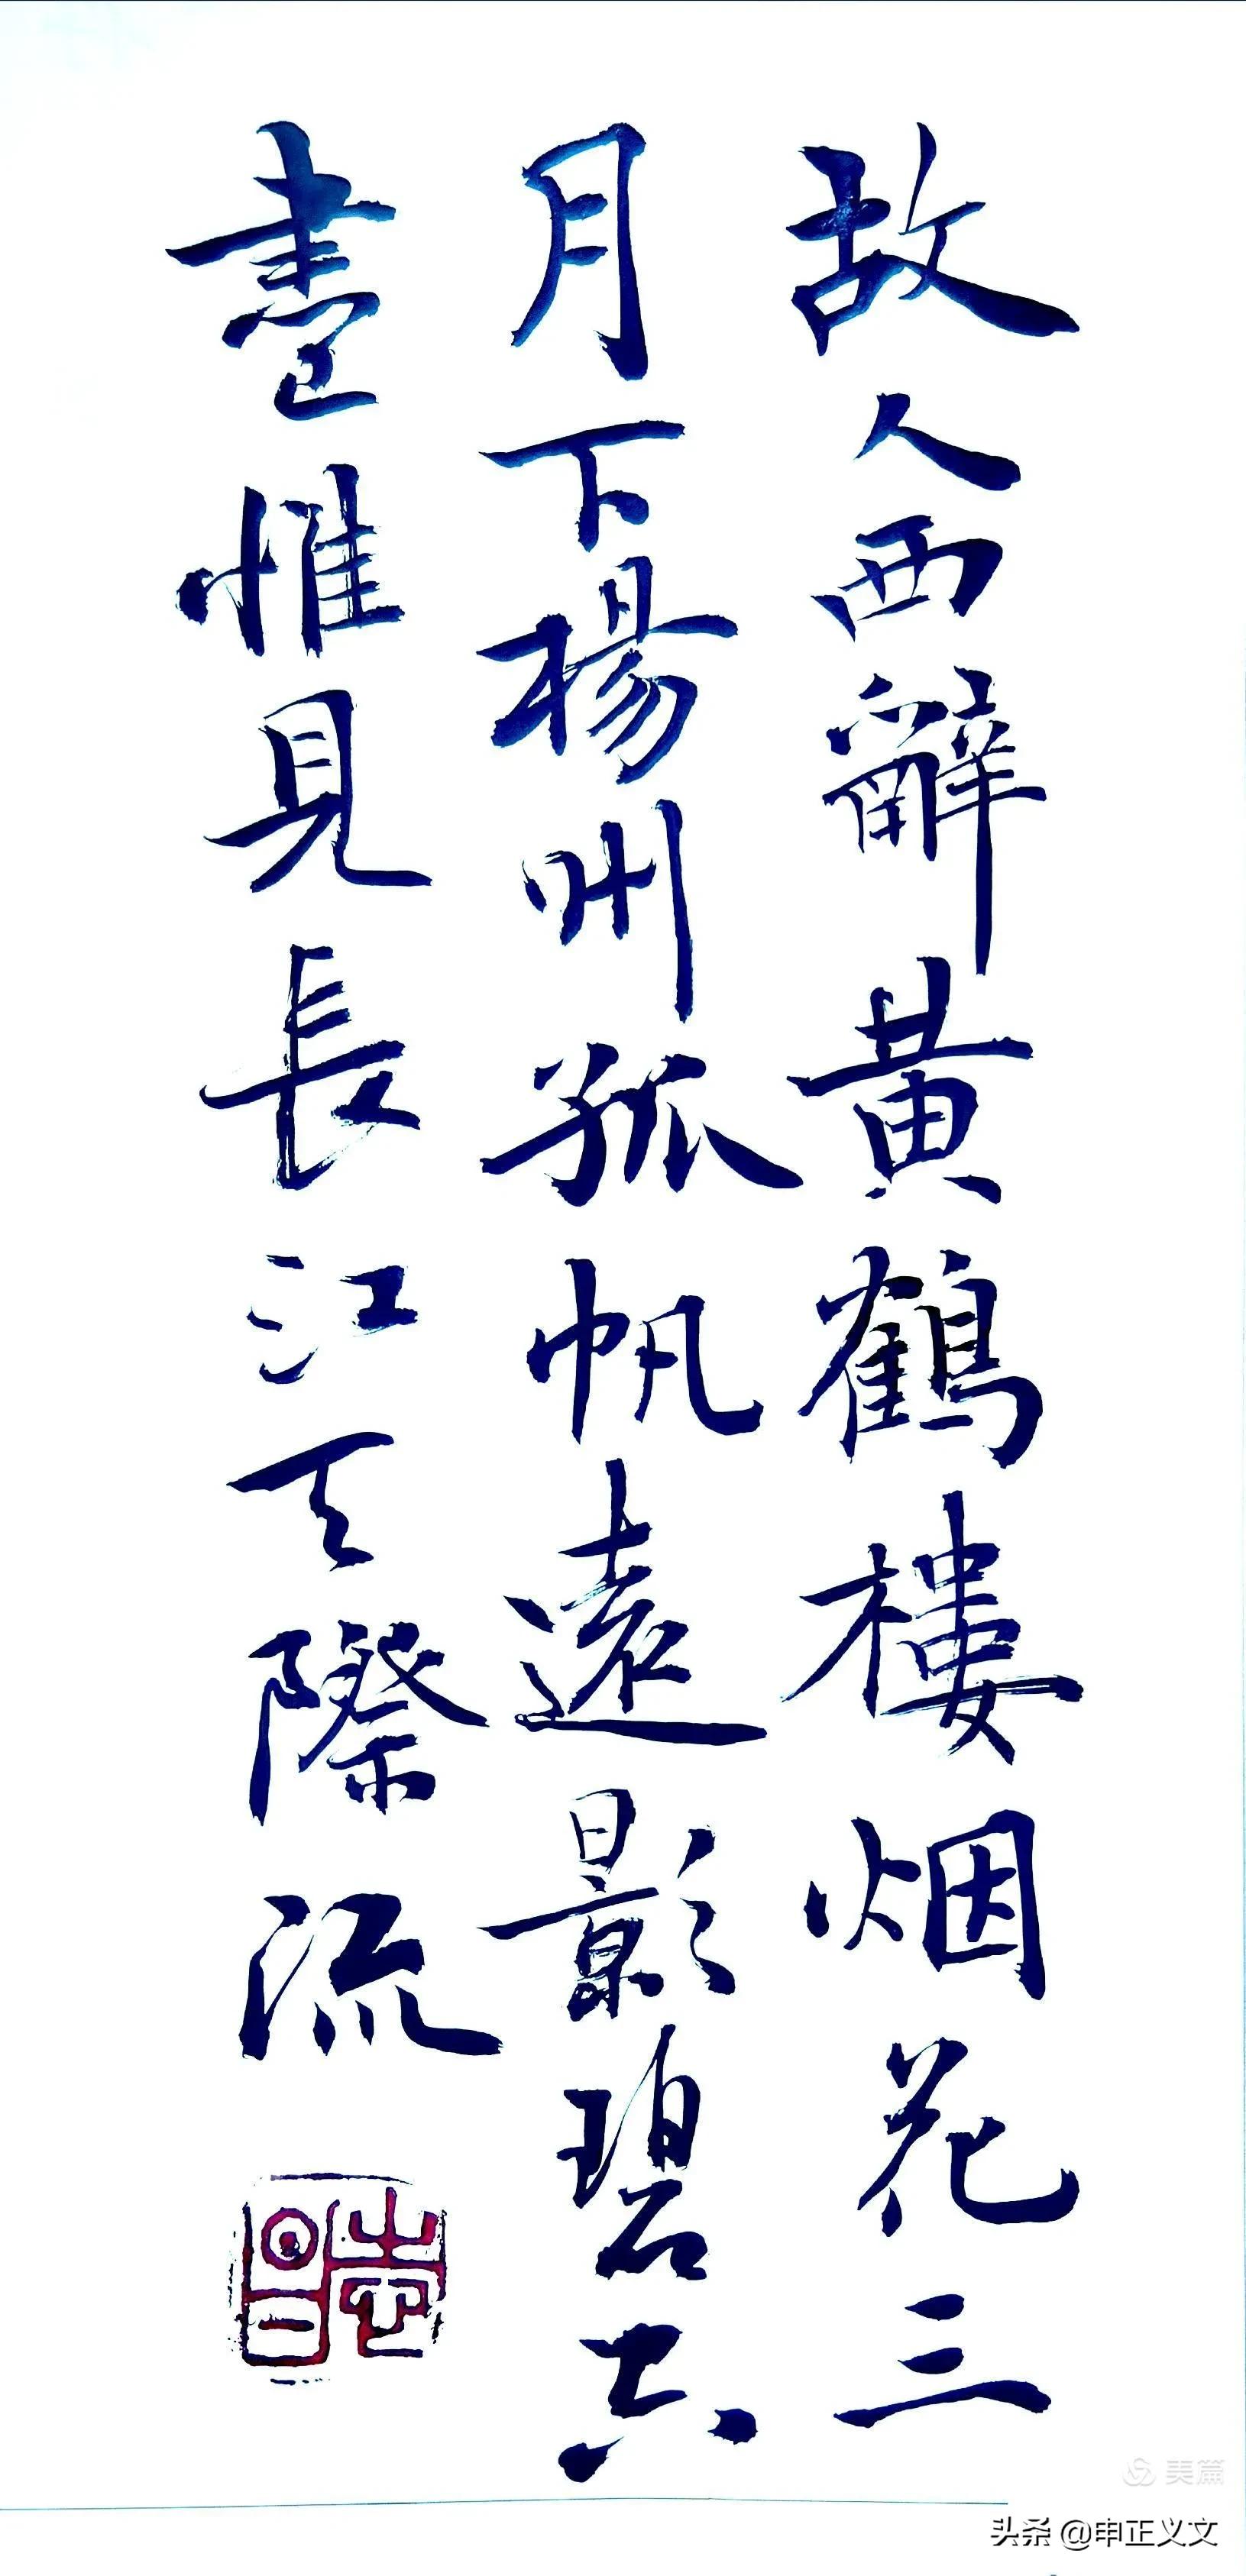 故人西辭黄鶴樓烟花三
月下楊州孤帆遠影碧
盡惟見長江天際流
美篇
头条 @申正义文